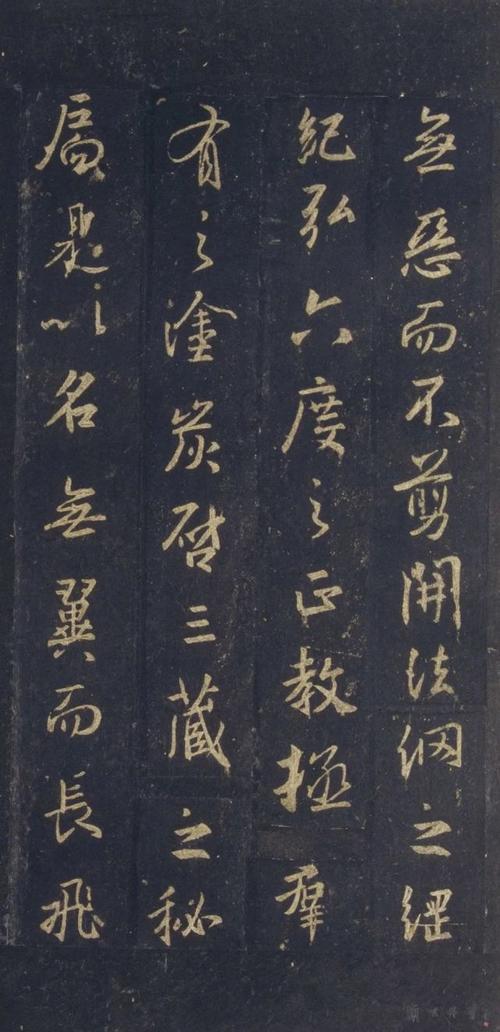 無惡而不剪開法網之綱
紀弘六度之正教拯羣
有之塗炭啓三藏之秘
扃是以名無翼而長飛